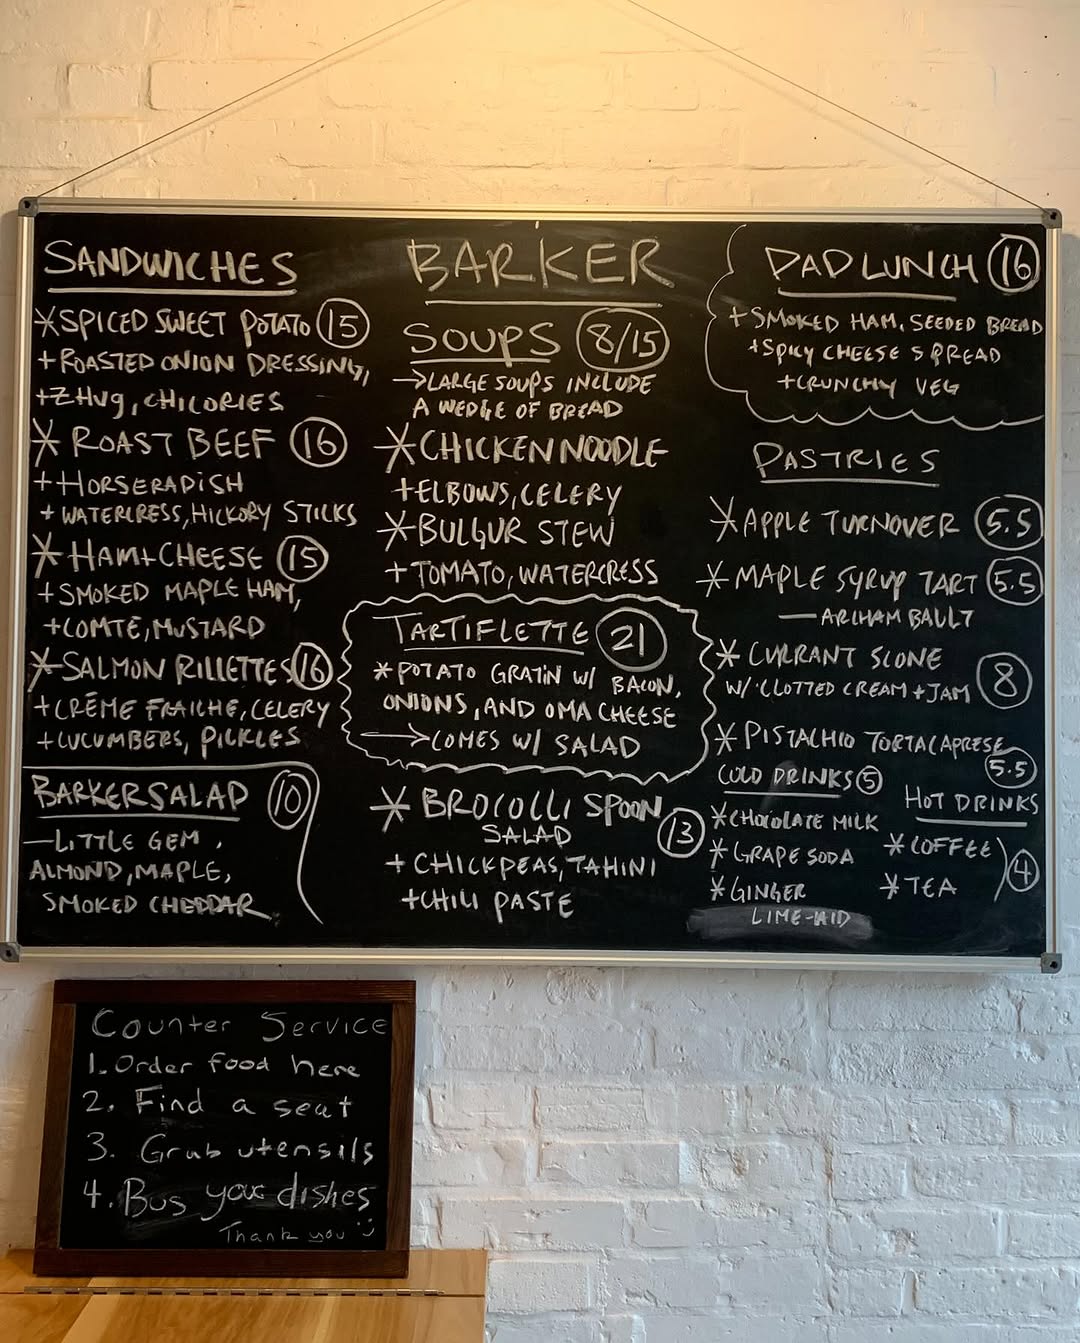 SANDWICHES
*SPICED SWEET POTATO 15
+ROASTED ONION DRESSING,
+ZHUG, CHICORIES
*ROAST BEEF 16
+HORSERADISH
+WATERCRESS, HICKORY STICKS
*HAM+CHEESE 15
+SMOKED MAPLE HAM,
+COMTE, MUSTARD
*SALMON RILLETTES 16
+CRÈME FRAICHE, CELERY
+CUCUMBERS, PICKLES
BARKER SALAD 10
—LITTLE GEM,
ALMOND, MAPLE,
SMOKED CHEDDAR
BARKER
SOUPS 8/15
→LARGE SOUPS INCLUDE
A WEDGE OF BREAD
*CHICKEN NOODLE
+ELBOWS, CELERY
*BULGUR STEW
+TOMATO, WATERCRESS
TARTIFLETTE 21
*POTATO GRATIN W/ BACON,
ONIONS, AND OMA CHEESE
→COMES W/ SALAD
*BROCOLLI SPOON
SALAD 13
+CHICKPEAS, TAHINI
+CHILI PASTE
DAD LUNCH 16
+SMOKED HAM, SEEDED BREAD
+SPICY CHEESE SPREAD
+CRUNCHY VEG
PASTRIES
*APPLE TURNOVER 5.5
*MAPLE SYRUP TART 5.5
—
*CURRANT SCONE
W/ CLOTTED CREAM+JAM 8
*PISTACHIO TORTA CAPRESE
5.5
COLD DRINKS 5
*CHOCOLATE MILK
*GRAPE SODA
*GINGER
LIME-AID
HOT DRINKS
*COFFEE
*TEA 4
Counter Service
1. Order food here
2. Find a seat
3. Grab utensils
4. Bus your dishes
Thank you